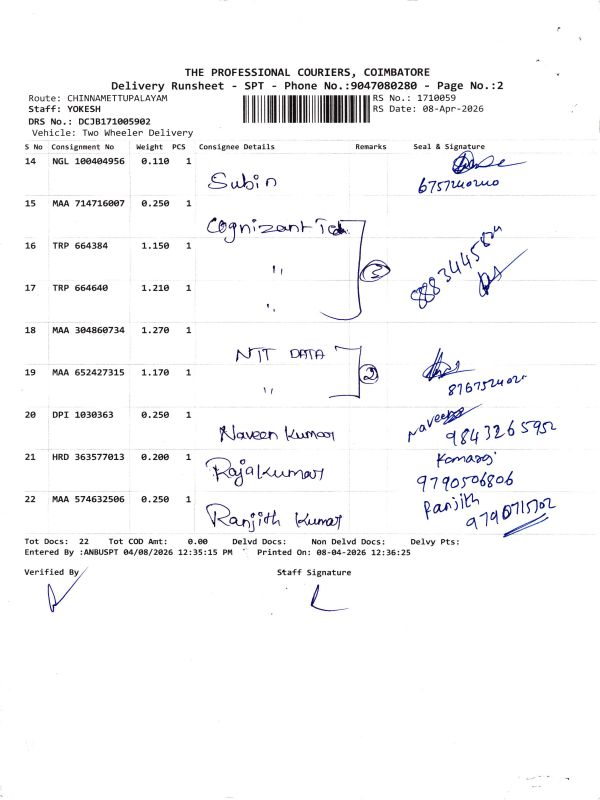 THE PROFESSIONAL COURIERS, COIMBATORE
Delivery Runsheet - SPT - Phone No.:9047080280 - Page No.:2
Route: CHINNAMETTUPALAYAM RS No.: 1710059
Staff: YOKESH RS Date: 08-Apr-2026
DRS No.: DCJB171005902
Vehicle: Two Wheeler Delivery
S No Consignment No Weight PCS Consignee Details Remarks Seal & Signature
14 NGL 100404956 0.110 1
Subin
15 MAA 714716007 0.250 1
Cognizant
16 TRP 664384 1.150 1
" ③
17 TRP 664640 1.210 1
"
18 MAA 304860734 1.270 1
NTT DATA
19 MAA 652427315 1.170 1 ②
"
20 DPI 1030363 0.250 1
Naveen Kumar Naveen
9843265952
21 HRD 363577013 0.200 1
Rajakumar
9790506806
22 MAA 574632506 0.250 1 Ranjith
Ranjith Kumar
Tot Docs: 22 Tot COD Amt: 0.00 Delvd Docs: Non Delvd Docs: Delvy Pts:
Entered By :ANBUSPT 04/08/2026 12:35:15 PM Printed On: 08-04-2026 12:36:25
Verified By Staff Signature